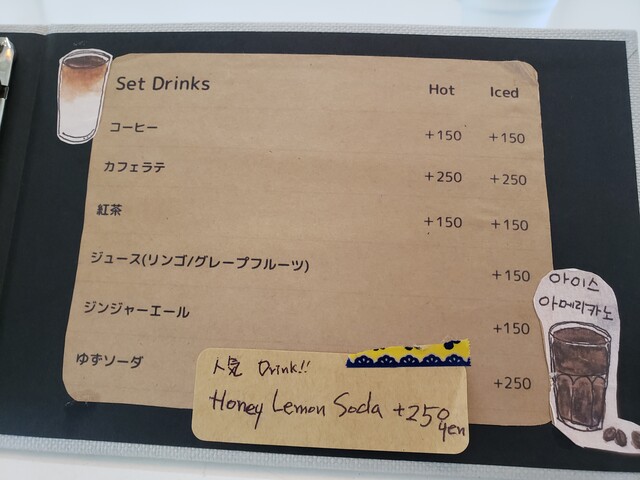 Set Drinks Hot Iced
コーヒー +150 +150
カフェラテ +250 +250
紅茶 +150 +150
ジュース(リンゴ/グレープフルーツ) +150
ジンジャーエール +150
ゆずソーダ +250
人気 Drink!!
Honey Lemon Soda +250yen
아이스
아메리카노